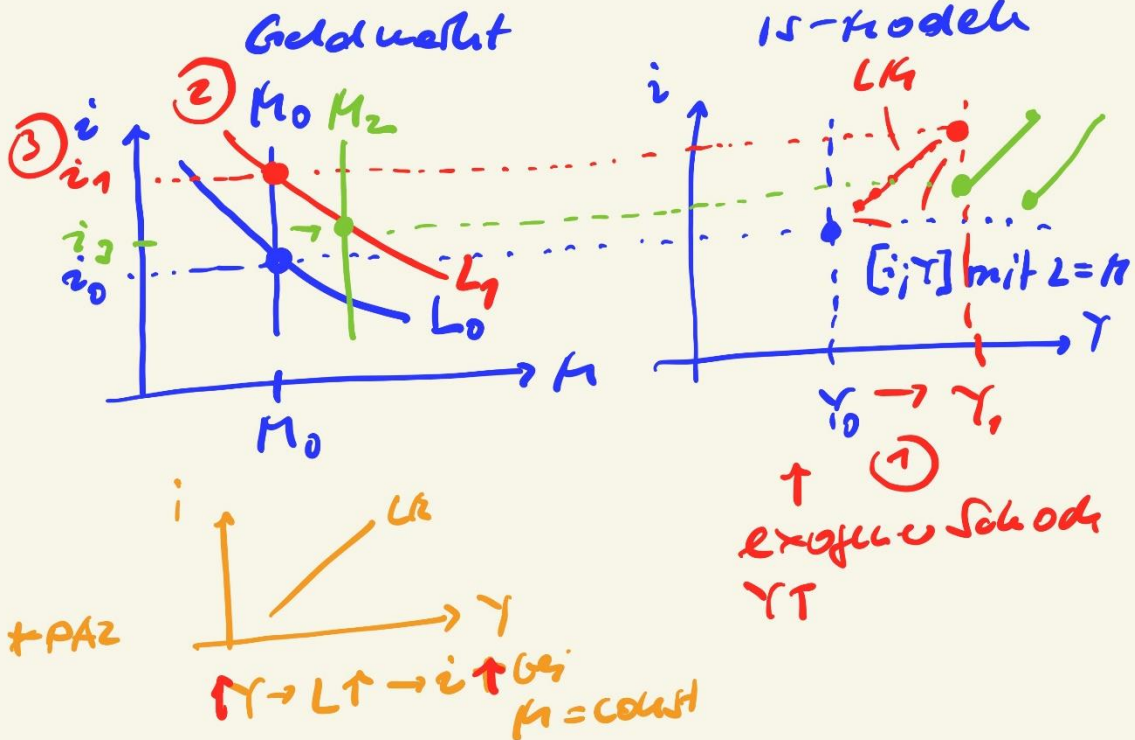 Geldmarkt
IS-Modell
② M₀ M₂
③ i
i₁
i₃
i₀
L₁
L₀
M
M₀
i
LM
[i, Y] mit L = M
Y
Y₀ → Y₁
①
↑
exogener Schock
Y↑
i
LM
Y
*PAZ
↑Y → L↑ → i↑ bei
M = const